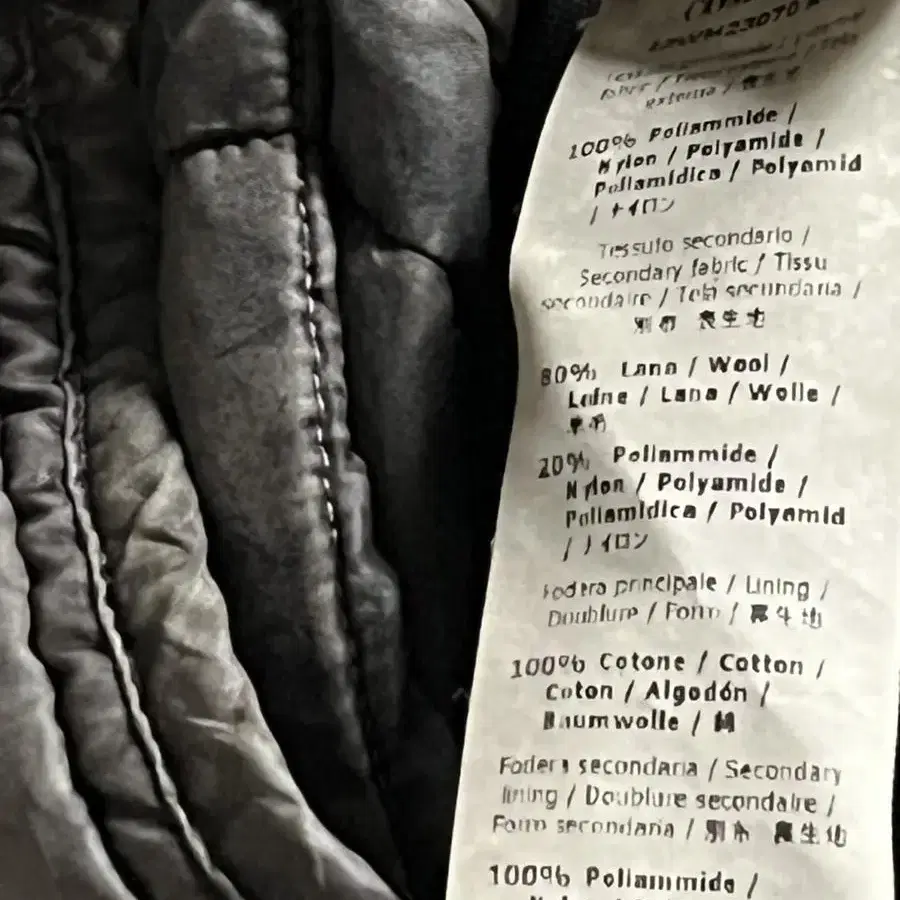 externa / 表生地
100% Poliammide /
Nylon / Polyamide /
Poliamídica / Polyamid
/ ナイロン
Tessuto secondario /
Secondary fabric / Tissu
secondaire / Tela secundaria /
別布 表生地
80% Lana / Wool /
Laine / Lana / Wolle /
20% Poliammide /
Nylon / Polyamide /
Poliamídica / Polyamid
/ ナイロン
Fodera principale / Lining /
Doublure / Forro / 裏生地
100% Cotone / Cotton /
Coton / Algodón /
Baumwolle / 綿
Fodera secondaria / Secondary
lining / Doublure secondaire /
Forro secondaria / 別布 裏生地
100% Poliammide /